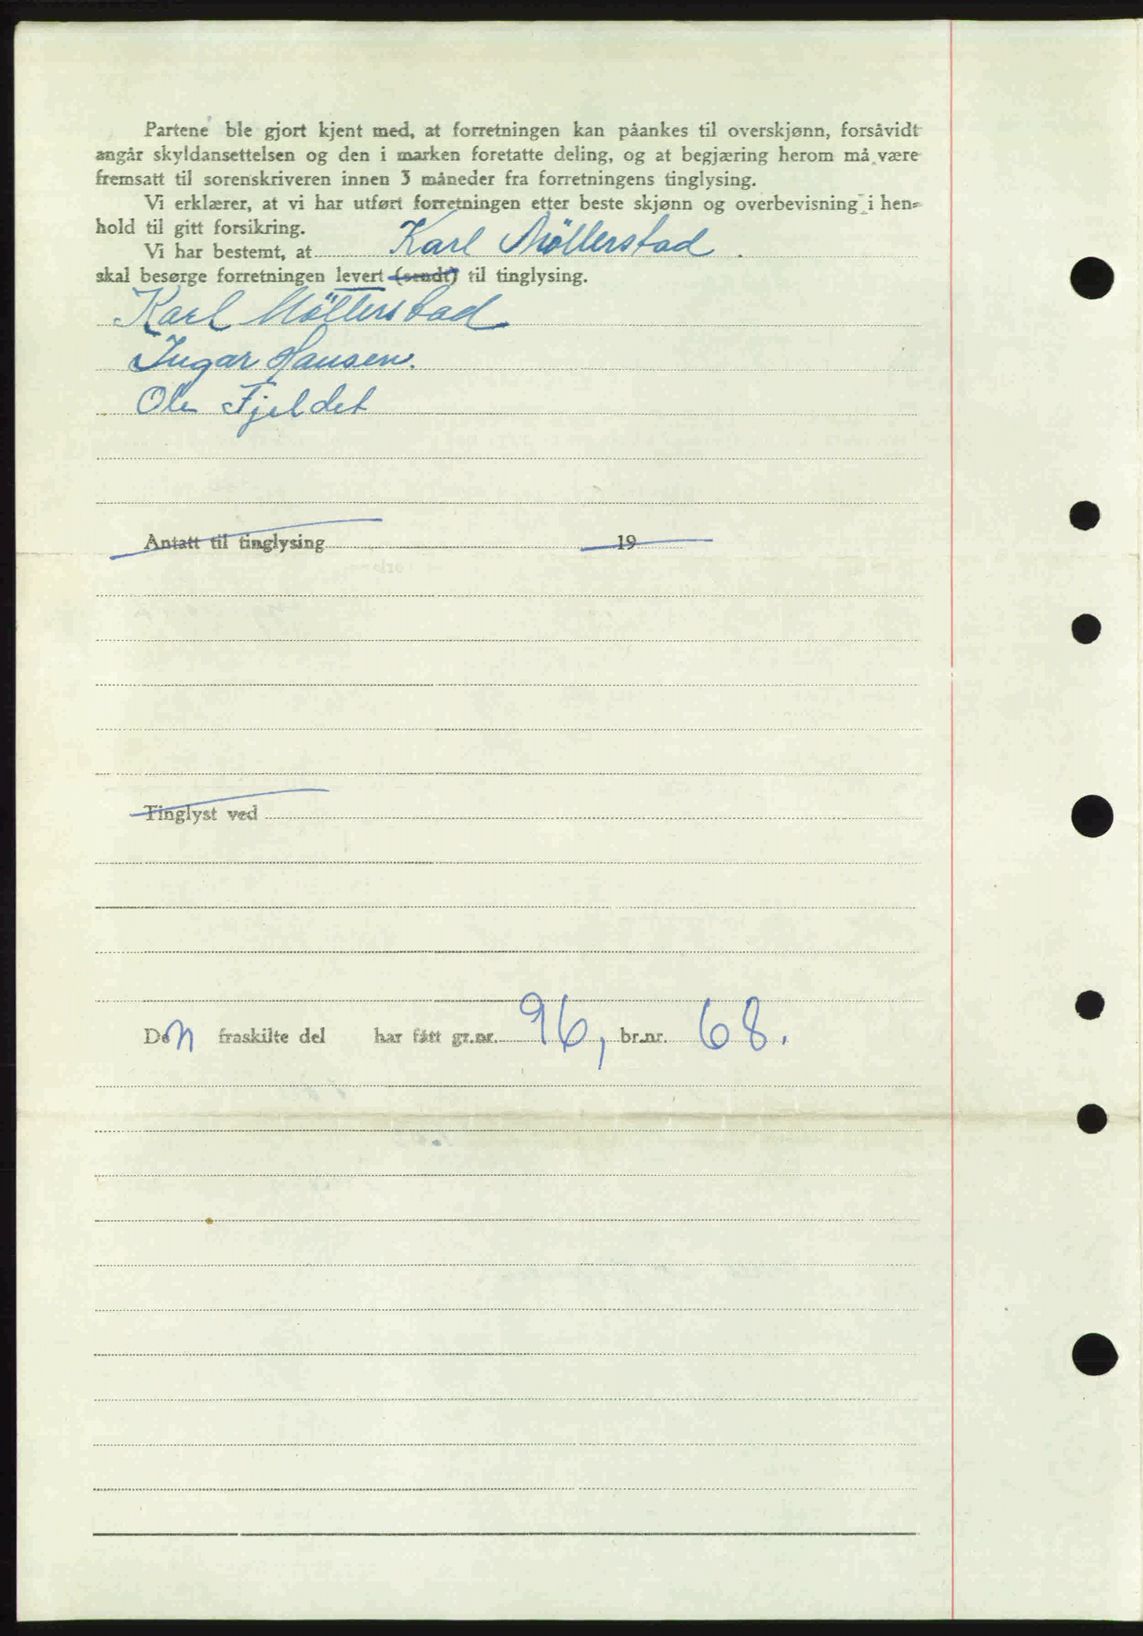 Partene ble gjort kjent med, at forretningen kan påankes til overskjønn, forsåvidt
angår skyldansettelsen og den i marken foretatte deling, og at begjæring herom må være
fremsatt til sorenskriveren innen 3 måneder fra forretningens tinglysing.
Vi erklærer, at vi har utført forretningen etter beste skjønn og overbevisning i hen-
hold til gitt forsikring.
Vi har bestemt, at Karl Möllerstad
skal besørge forretningen levert (sendt) til tinglysing.
Karl Möllerstad
Ingar Hansen.
Ole Fjeldet
Antatt til tinglysing 19
Tinglyst ved
Den fraskilte del har fått gr.nr. 96, br.nr. 68.